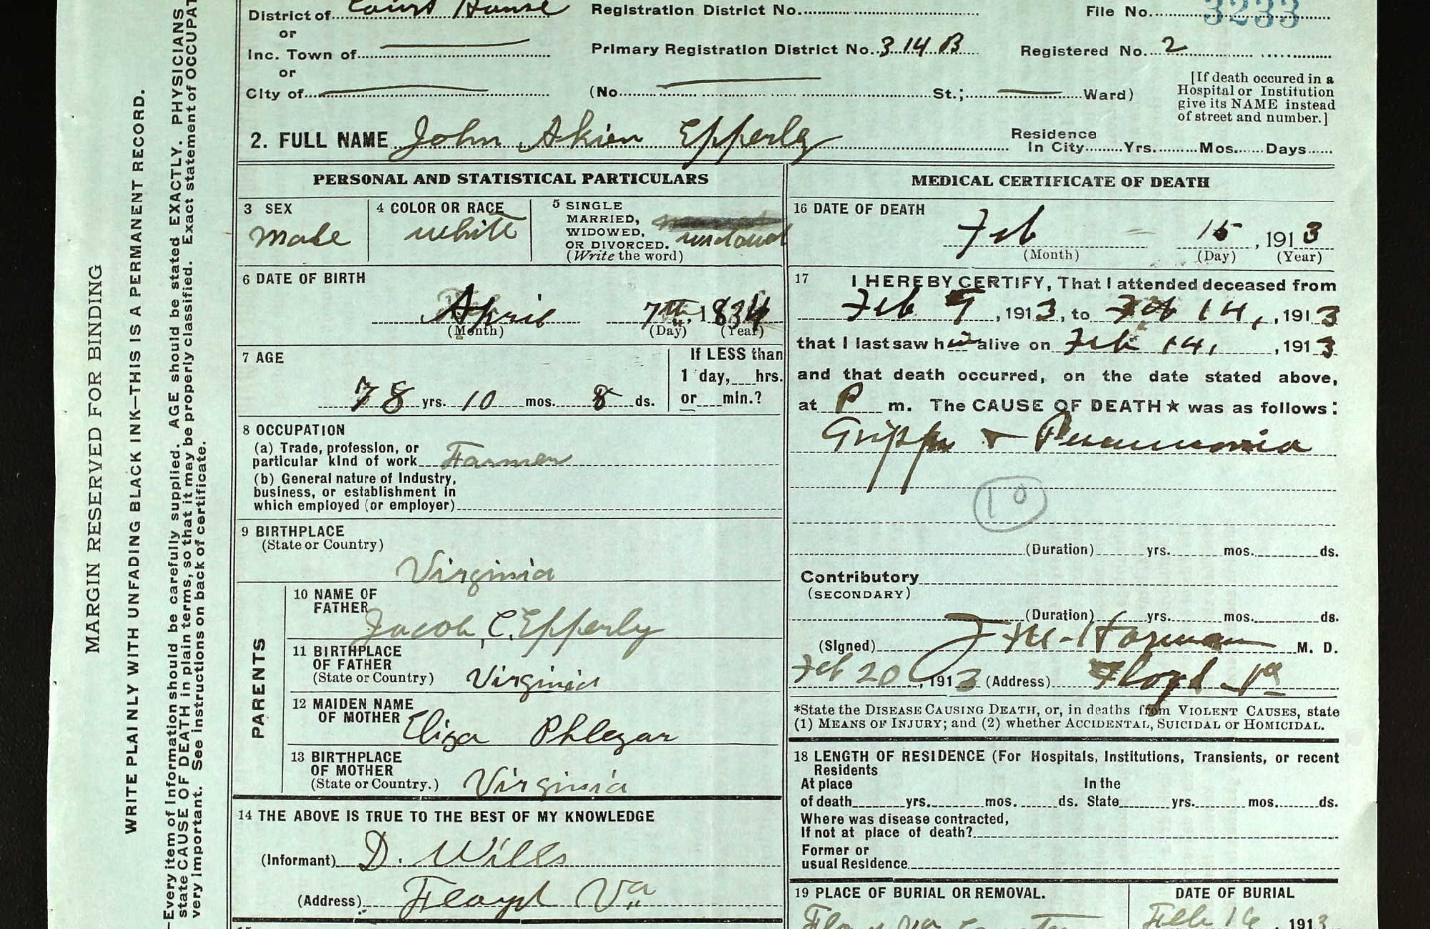 District of Court House Registration District No. File No. 3233
or
Inc. Town of Primary Registration District No. 314B Registered No. 2
or
City of (No. St.; Ward)
[If death occured in a
Hospital or Institution
give its NAME instead
of street and number.]
2. FULL NAME John Akien Epperly
Residence
In City Yrs. Mos. Days
PERSONAL AND STATISTICAL PARTICULARS
3 SEX
Male
4 COLOR OR RACE
white
5 SINGLE
MARRIED,
WIDOWED,
OR DIVORCED.
(Write the word)
widowed
6 DATE OF BIRTH
April 7th, 1834
(Month) (Day) (Year)
7 AGE
78 yrs. 10 mos. 8 ds.
If LESS than
1 day, hrs.
or min.?
8 OCCUPATION
(a) Trade, profession, or
particular kind of work Farmer
(b) General nature of Industry,
business, or establishment in
which employed (or employer)
9 BIRTHPLACE
(State or Country)
Virginia
PARENTS
10 NAME OF
FATHER
Jacob C. Epperly
11 BIRTHPLACE
OF FATHER
(State or Country) Virginia
12 MAIDEN NAME
OF MOTHER Eliza Phlegar
13 BIRTHPLACE
OF MOTHER
(State or Country.) Virginia
14 THE ABOVE IS TRUE TO THE BEST OF MY KNOWLEDGE
(Informant) D. Wills
(Address) Floyd Va
MEDICAL CERTIFICATE OF DEATH
16 DATE OF DEATH
Feb 15, 1913
(Month) (Day) (Year)
17 I HEREBY CERTIFY, That I attended deceased from
Feb 9, 1913, to Feb 14, 1913
that I last saw him alive on Feb 14, 1913
and that death occurred, on the date stated above,
at P m. The CAUSE OF DEATH★ was as follows:
Grippe + Pneumonia
10
(Duration) yrs. mos. ds.
Contributory
(SECONDARY)
(Duration) yrs. mos. ds.
(Signed) Harman M. D.
Feb 20, 1913 (Address) Floyd Va
*State the DISEASE CAUSING DEATH, or, in deaths from VIOLENT CAUSES, state
(1) MEANS OF INJURY; and (2) whether ACCIDENTAL, SUICIDAL or HOMICIDAL.
18 LENGTH OF RESIDENCE (For Hospitals, Institutions, Transients, or recent
Residents
At place In the
of death yrs. mos. ds. State yrs. mos. ds.
Where was disease contracted,
If not at place of death?
Former or
usual Residence
19 PLACE OF BURIAL OR REMOVAL.
DATE OF BURIAL
Feb 16, 1913
MARGIN RESERVED FOR BINDING
WRITE PLAINLY WITH UNFADING BLACK INK—THIS IS A PERMANENT RECORD.
—Every item of Information should be carefully supplied. AGE should be stated EXACTLY. PHYSICIANS
state CAUSE OF DEATH in plain terms, so that it may be properly classified. Exact statement of OCCUPAT
very important. See instructions on back of certificate.